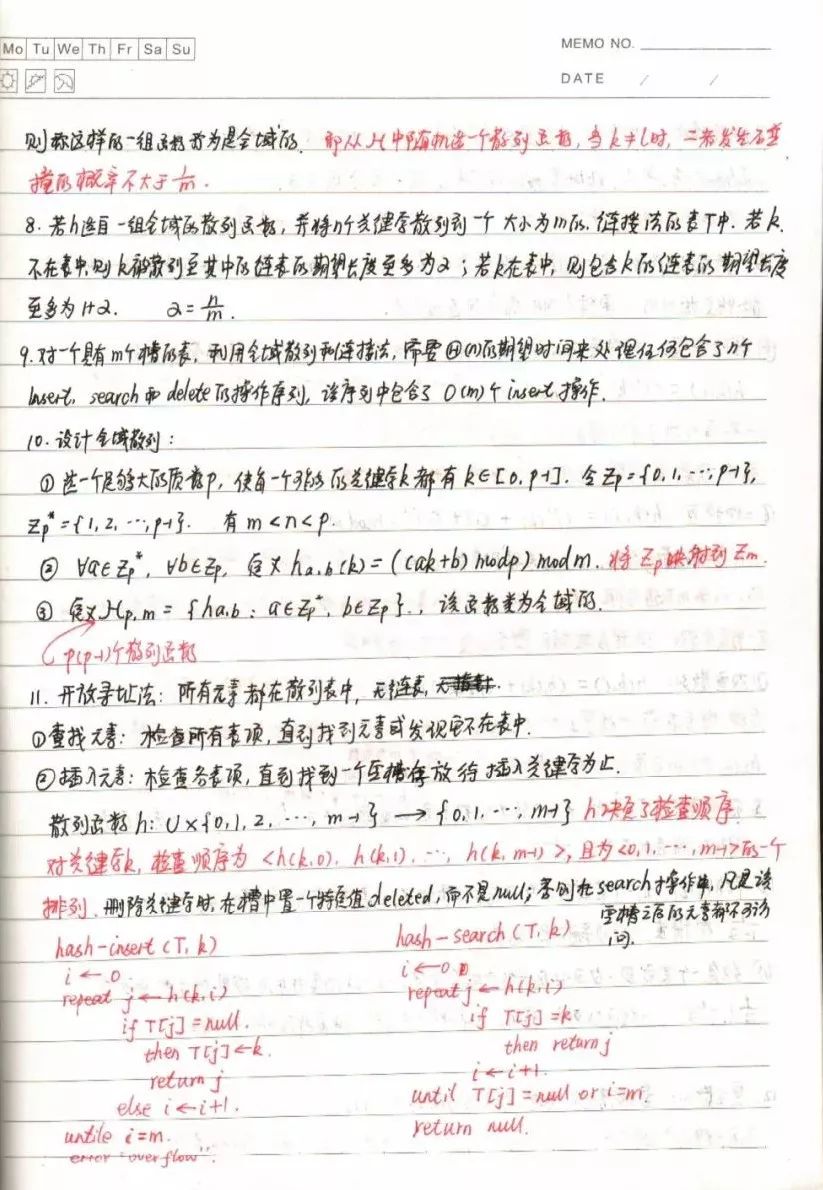 Mo Tu We Th Fr Sa Su
MEMO NO.
DATE / /
则称这样的一组函数称为是全域的. 即从H中随机选一个散列函数, 当k≠l时, 二者发生不
撞的概率不大于1/m.
8. 若h选自一组全域的散列函数, 并将n个关键字散列到一个大小为m的. 链接法的表T中. 若k.
不在表中, 则k被散列至其中的链表的期望长度至多为α; 若k在表中, 则包含k的链表的期望长度
至多为1+α. α=n/m.
9. 对一个具有m个槽的表, 利用全域散列和链接法, 需要Θ(n)的期望时间来处理任何包含了n个
Insert, search和delete的操作序列, 该序列中包含了O(m)个insert操作.
10. 设计全域散列:
① 选一个足够大的质数p, 使每一个可能的关键字k都有k∈[0, p-1]. 令Zp={0,1,…,p-1},
Zp*={1,2,…,p-1}. 有m<n<p.
② ∀a∈Zp*, ∀b∈Zp, 定义ha,b(k)=((ak+b)modp)modm. 将Zp映射到Zm.
③ 定义Hp,m={ha,b: a∈Zp*, b∈Zp}., 该函数类为全域的.
p(p-1)个散列函数
11. 开放寻址法: 所有元素都在散列表中, 无链表, 无指针.
①查找元素: 检查所有表项, 直到找到元素或发现它不在表中.
②插入元素: 检查各表项, 直到找到一个空槽存放待插入关键字为止.
散列函数h: U×{0,1,2,…,m-1}→{0,1,…,m-1} h决定了检查顺序.
对关键字k, 检查顺序为<h(k,0), h(k,1), …, h(k,m-1)>, 且为<0,1,…,m-1>的一个
排列. 删除关键字时, 在槽中置一个特定值deleted, 而不是null; 否则在search操作中, 凡是该
空槽之后的元素都不可访
问.
hash-insert(T,k)
i←0
repeat j←h(k,i)
if T[j]=null.
then T[j]←k.
return j
else i←i+1.
untile i=m.
error "overflow".
hash-search(T,k)
i←0
repeat j←h(k,i)
if T[j]=k
then return j
i←i+1.
until T[j]=null or i=m.
return null.